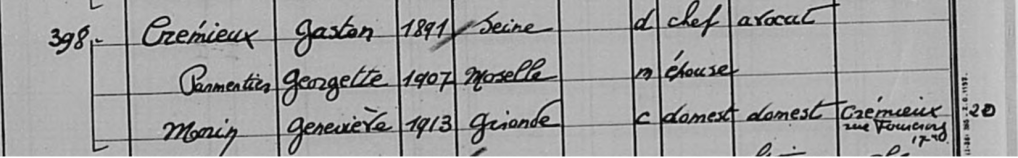 398 - Crémieux gaston 1891 Seine d chef avocat
Parmentier georgette 1907 Moselle m épouse
Morin geneviève 1913 gironde c domest domest Crémieux 20
rue